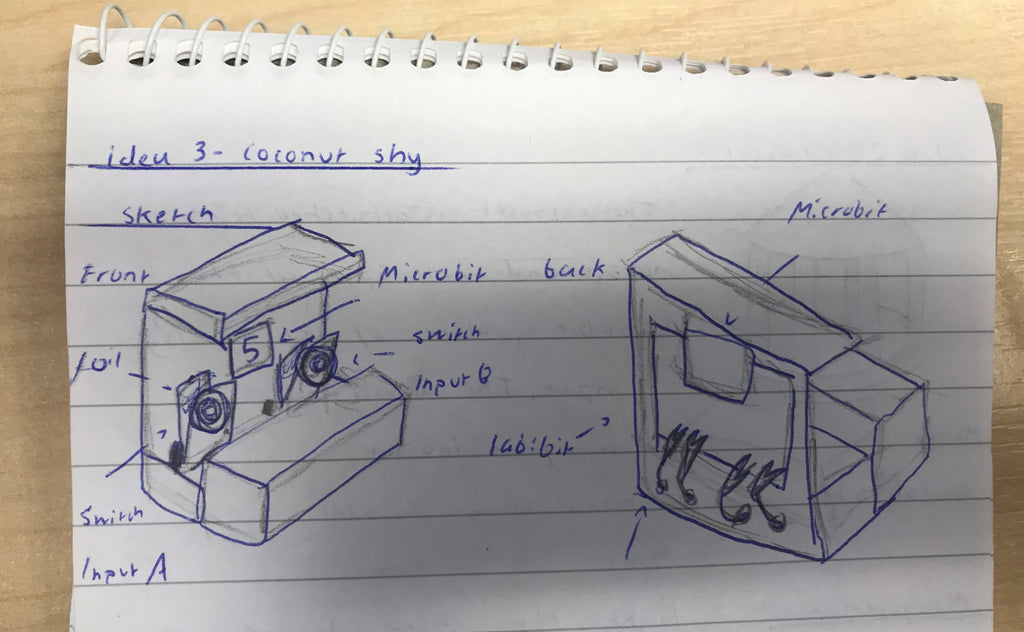 idea 3- Coconut shy
Sketch
Front
Microbit
foil
5
Switch
Input B
Switch
Input A
Microbit
back
lab:bit